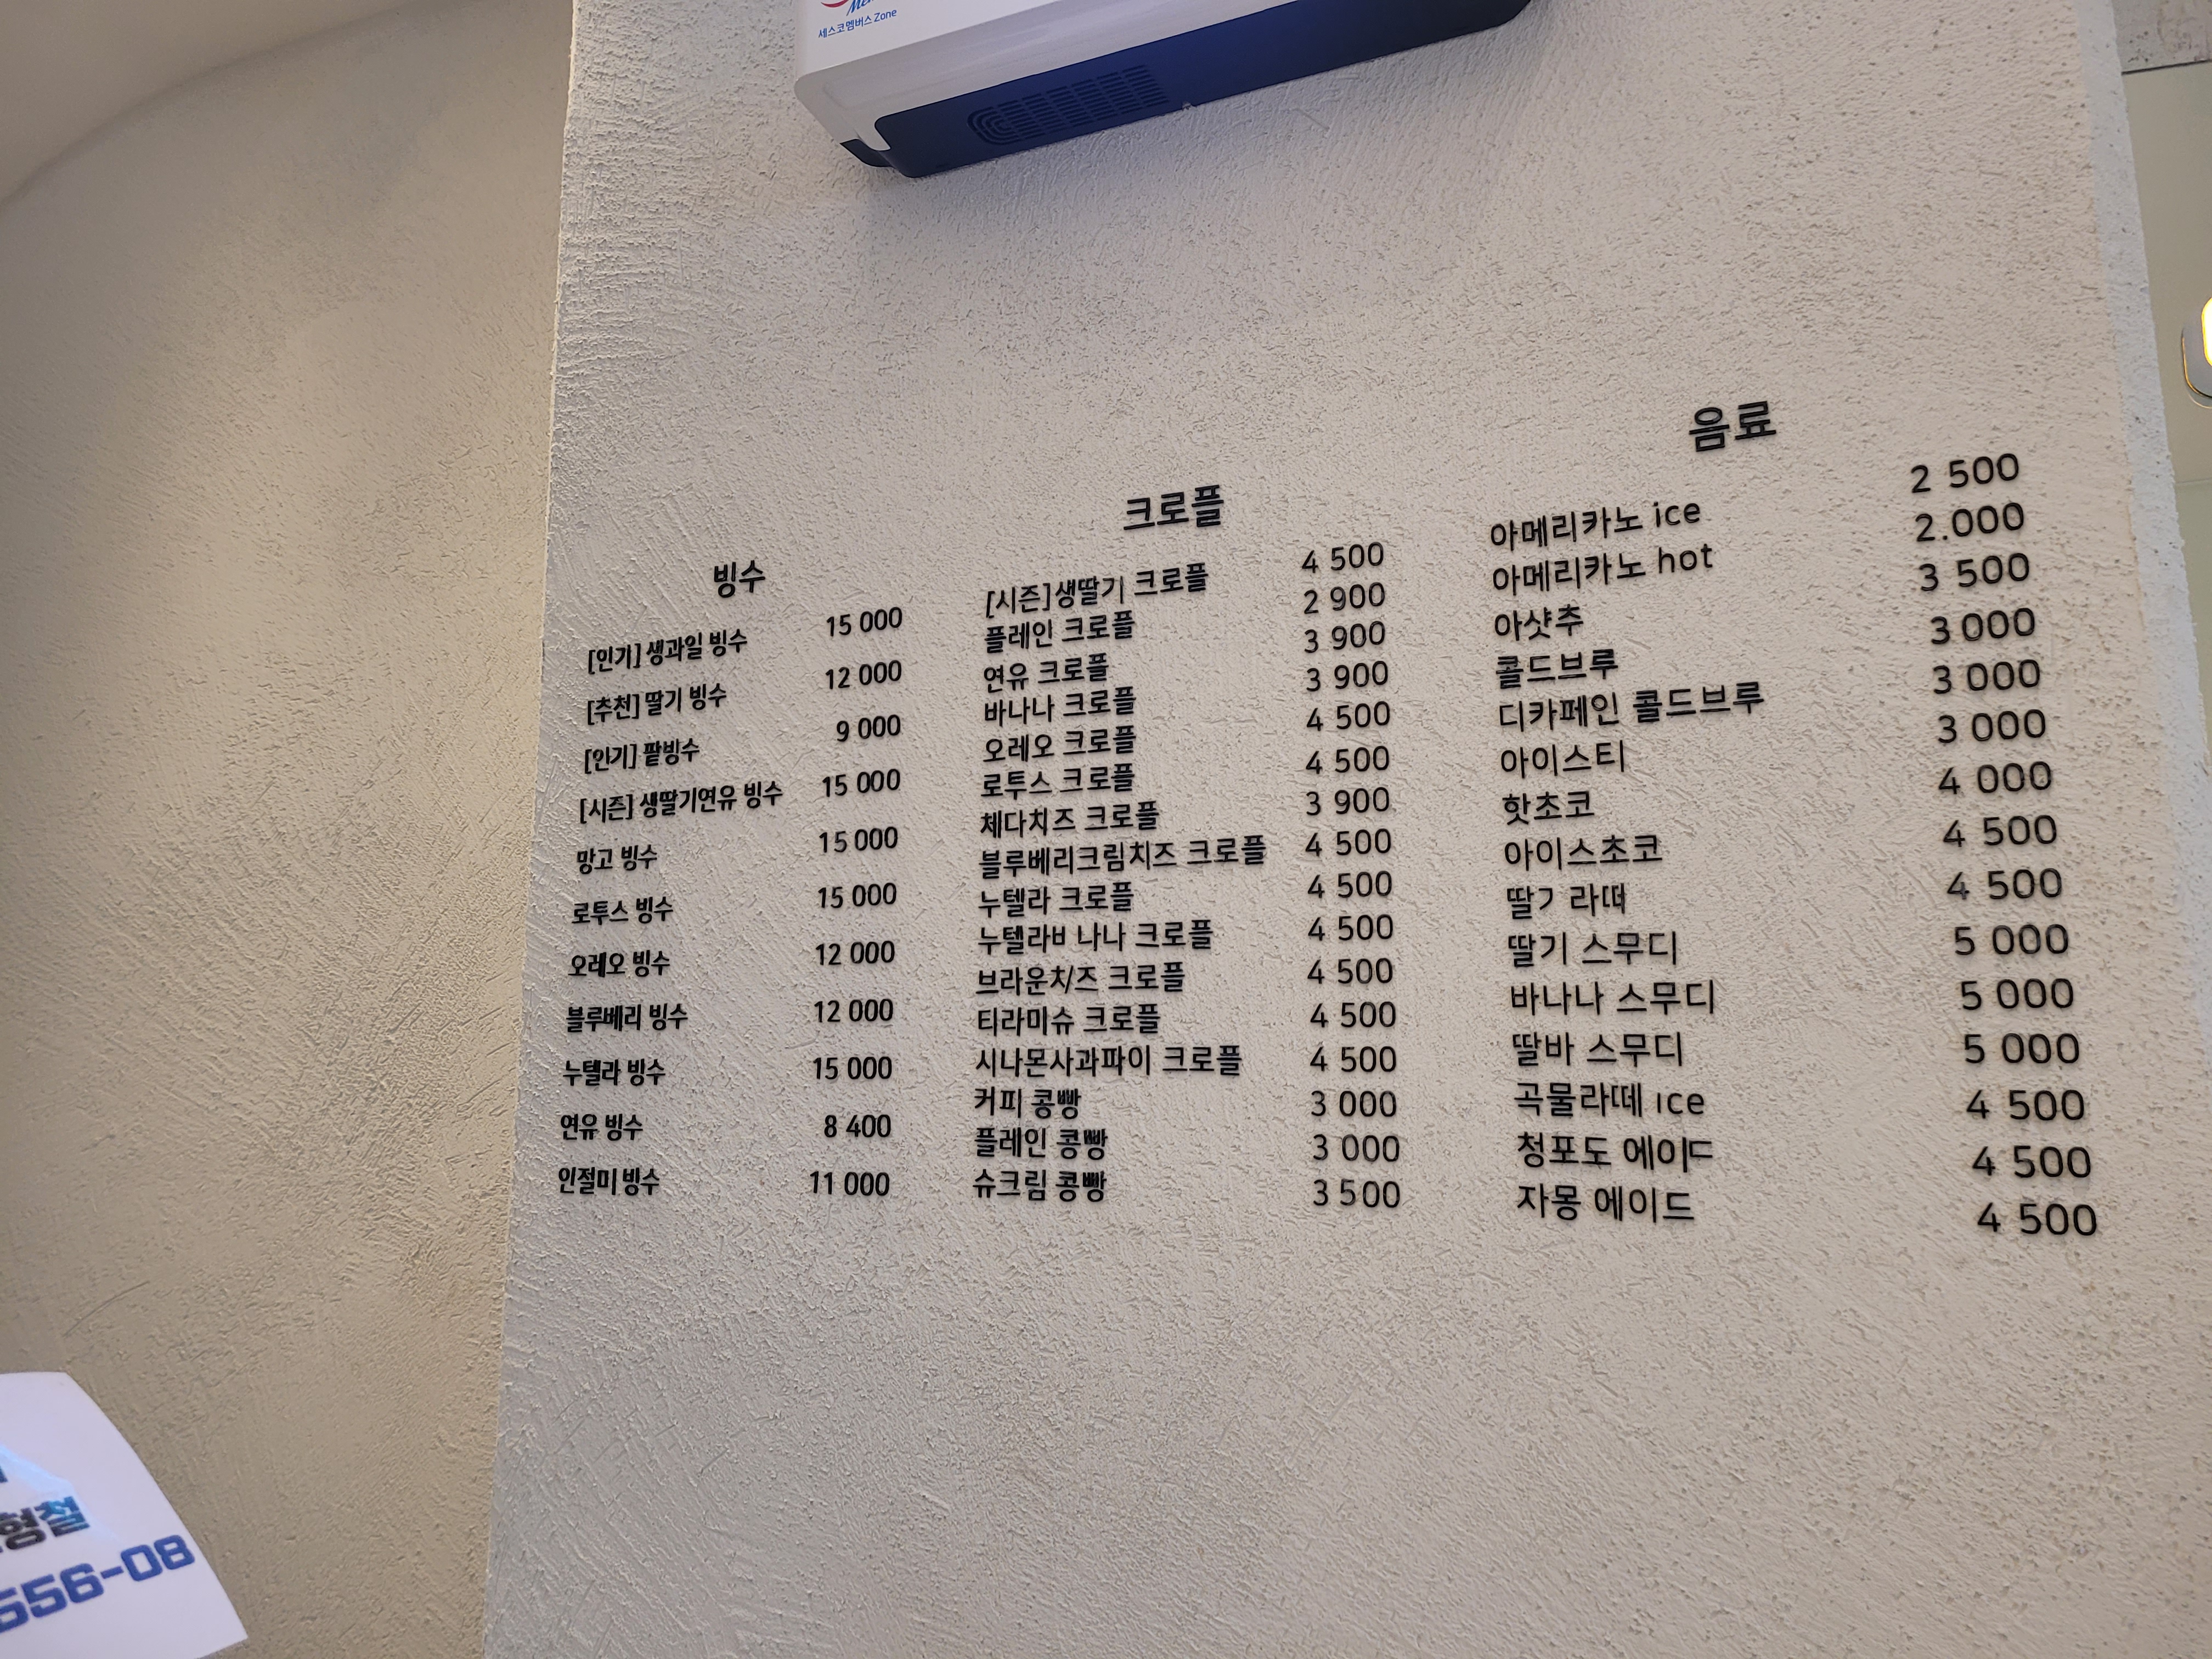 세스코멤버스 Zone
빙수
[인기] 생과일 빙수 15 000
[추천] 딸기 빙수 12 000
[인기] 팥빙수 9 000
[시즌] 생딸기연유 빙수 15 000
망고 빙수 15 000
로투스 빙수 15 000
오레오 빙수 12 000
블루베리 빙수 12 000
누텔라 빙수 15 000
연유 빙수 8 400
인절미 빙수 11 000
크로플
[시즌]생딸기 크로플 4 500
플레인 크로플 2 900
연유 크로플 3 900
바나나 크로플 3 900
오레오 크로플 4 500
로투스 크로플 4 500
체다치즈 크로플 3 900
블루베리크림치즈 크로플 4 500
누텔라 크로플 4 500
누텔라바나나 크로플 4 500
브라운치즈 크로플 4 500
티라미슈 크로플 4 500
시나몬사과파이 크로플 4 500
커피 콩빵 3 000
플레인 콩빵 3 000
슈크림 콩빵 3 500
음료
아메리카노 ice 2 500
아메리카노 hot 2.000
아샷추 3 500
콜드브루 3 000
디카페인 콜드브루 3 000
아이스티 3 000
핫초코 4 000
아이스초코 4 500
딸기 라떼 4 500
딸기 스무디 5 000
바나나 스무디 5 000
딸바 스무디 5 000
곡물라떼 ice 4 500
청포도 에이드 4 500
자몽 에이드 4 500
형철
556-08